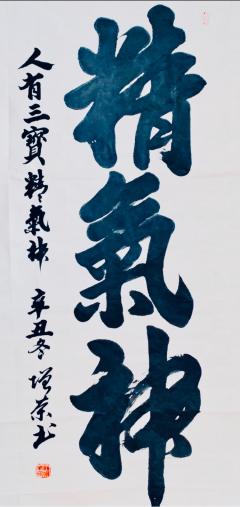 精氣神
人有三寶精氣神 辛丑冬 增榮书